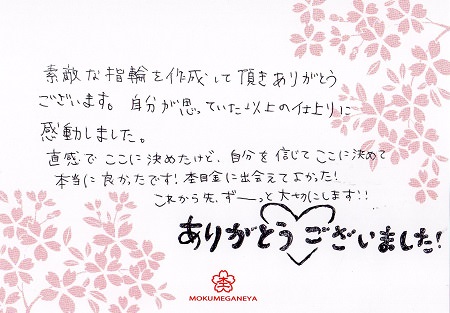 素敵な指輪を作成して頂きありがとう
ございます。自分が思っていた以上の仕上りに
感動しました。
直感でここに決めたけど、自分を信じてここに決めて
本当に良かったです!木目金に出会えてよかった!
これから先、ず〜っと大切にします!!
ありがとうございました!
MOKUMEGANEYA